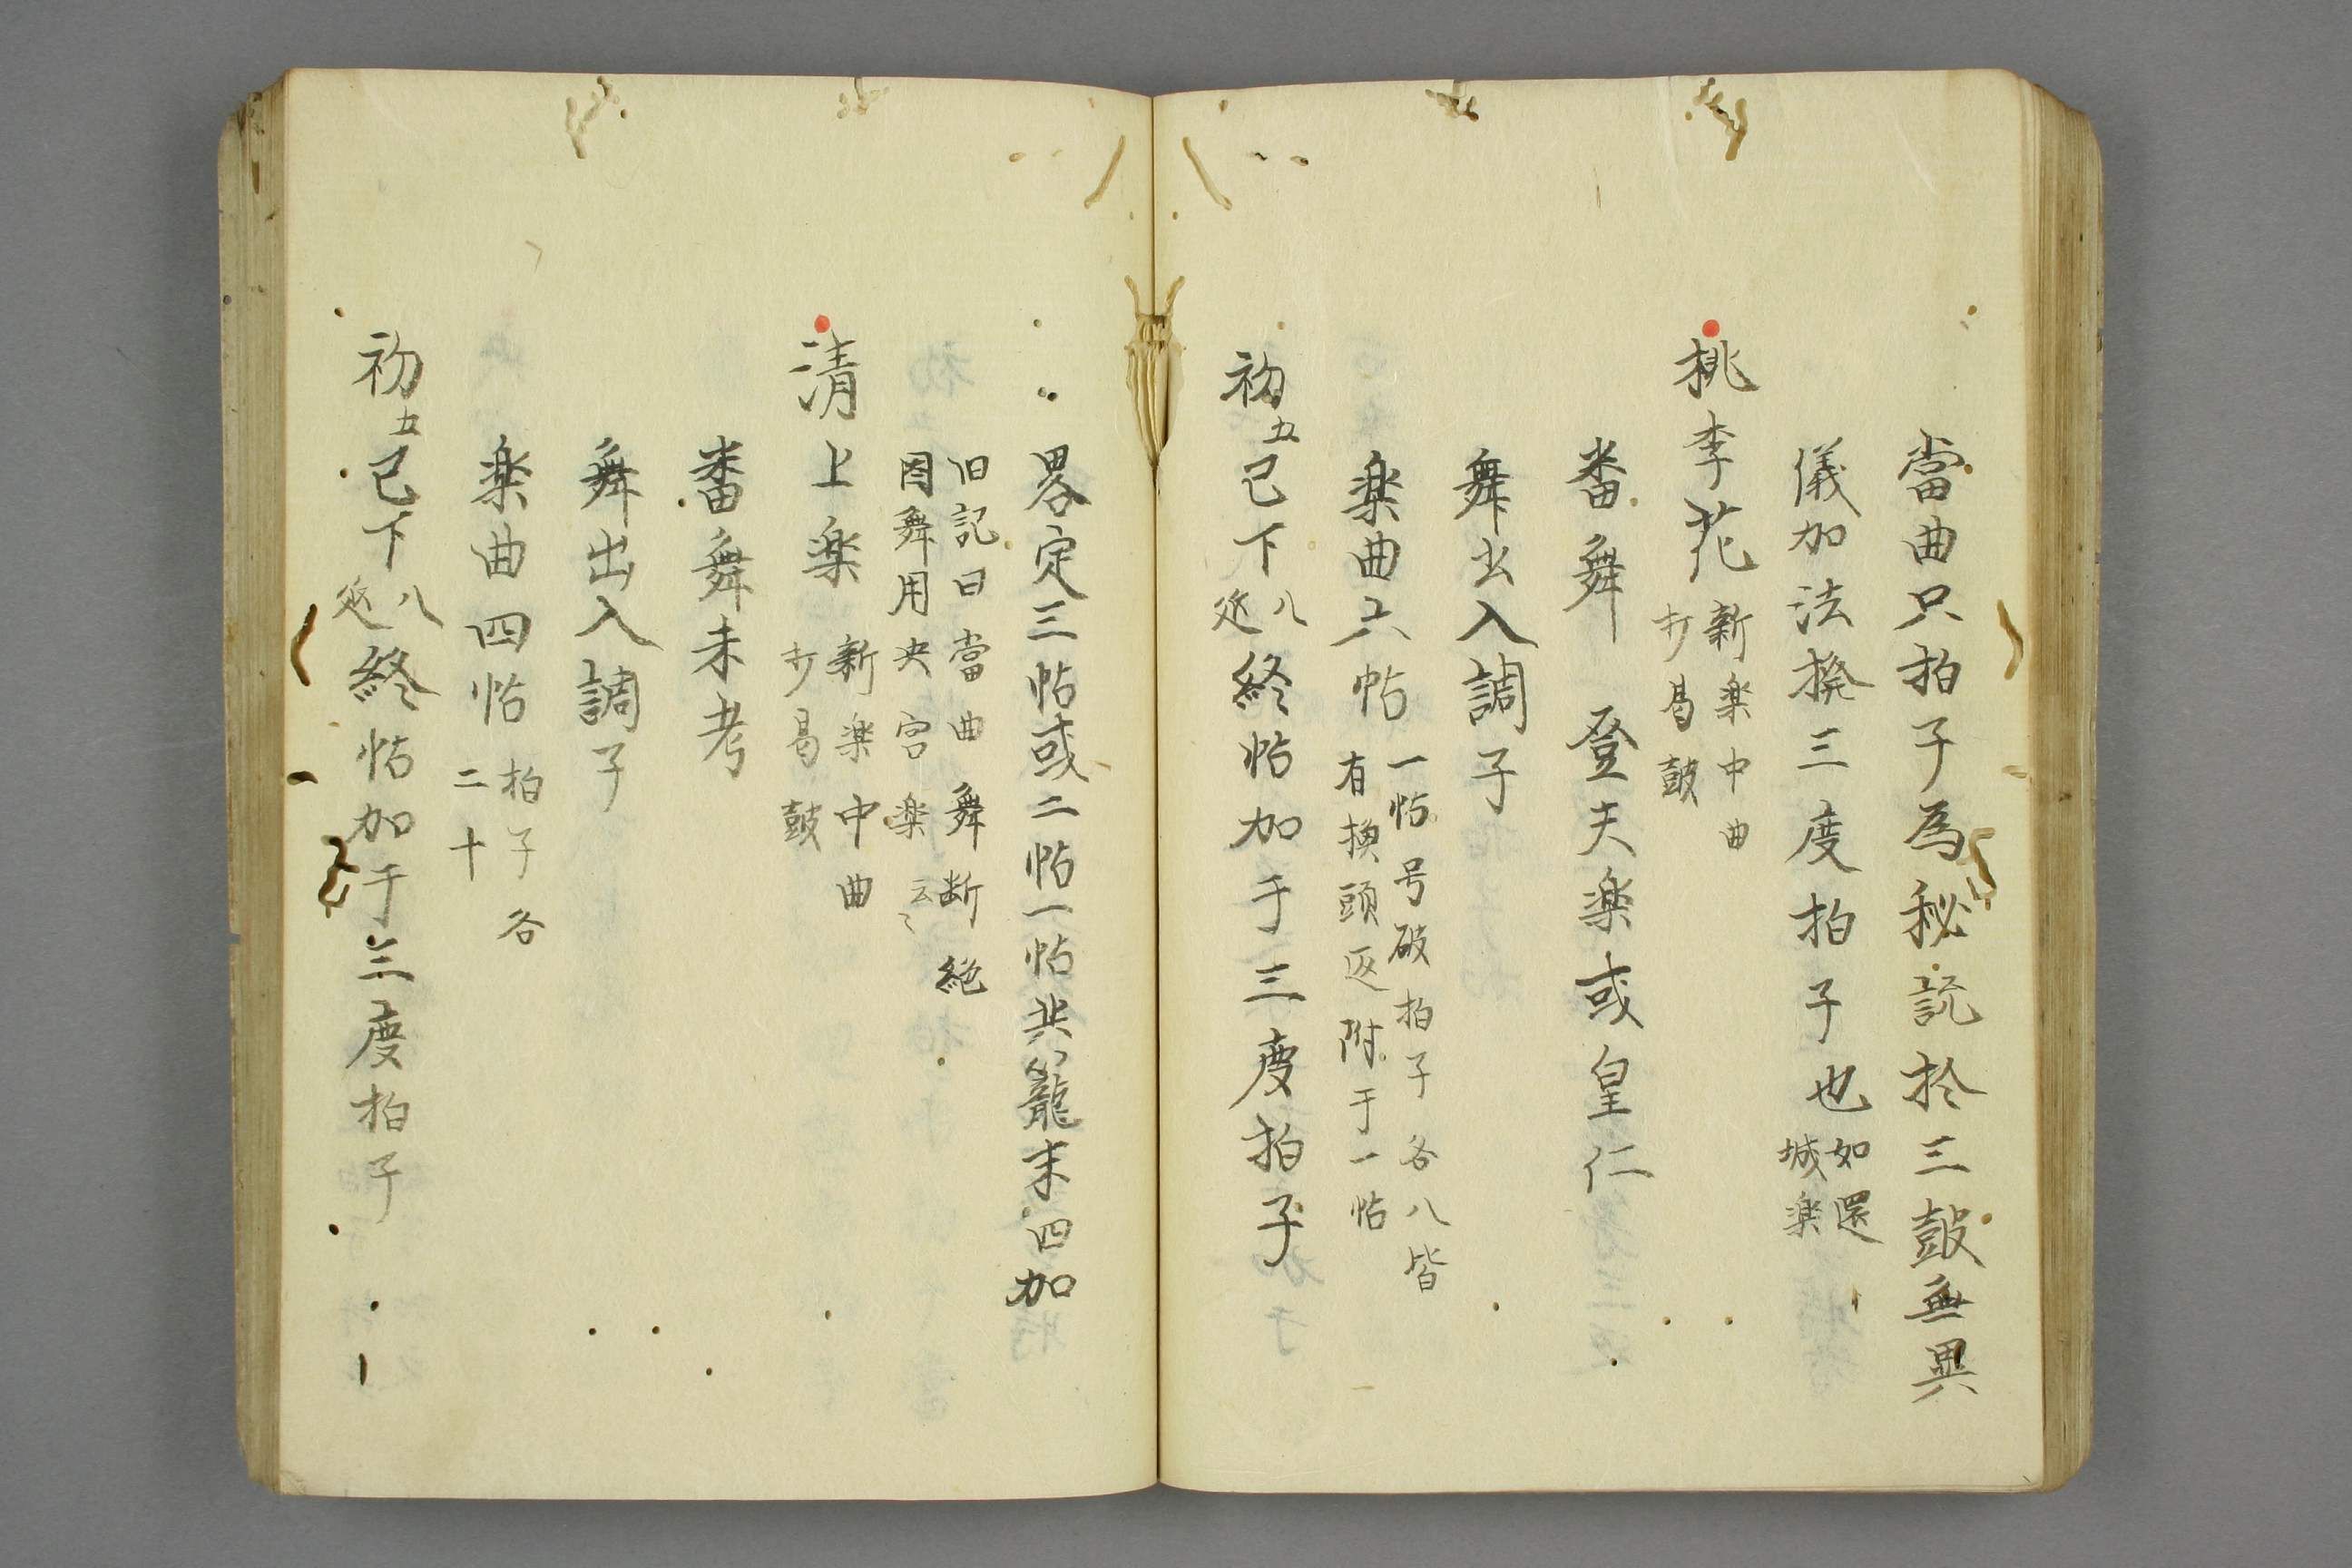 當曲只拍子為秘説於三鼓無異
儀加法撥三度拍子也如還
城楽
桃李花新楽中曲
打曷鼓
番舞　登天楽或皇仁
舞出入調子
楽曲六帖一帖号破拍子各八皆
有換頭返附于一帖
初五已下八
延終帖加于三度拍子
畧定三帖或二帖一帖共籠末四加
旧記曰當曲舞断絶
因舞用央宮楽云〻
清上楽新楽中曲
打曷鼓
番舞未考
舞出入調子
楽曲四帖拍子各
二十
初五已下八
延終帖加于三度拍子